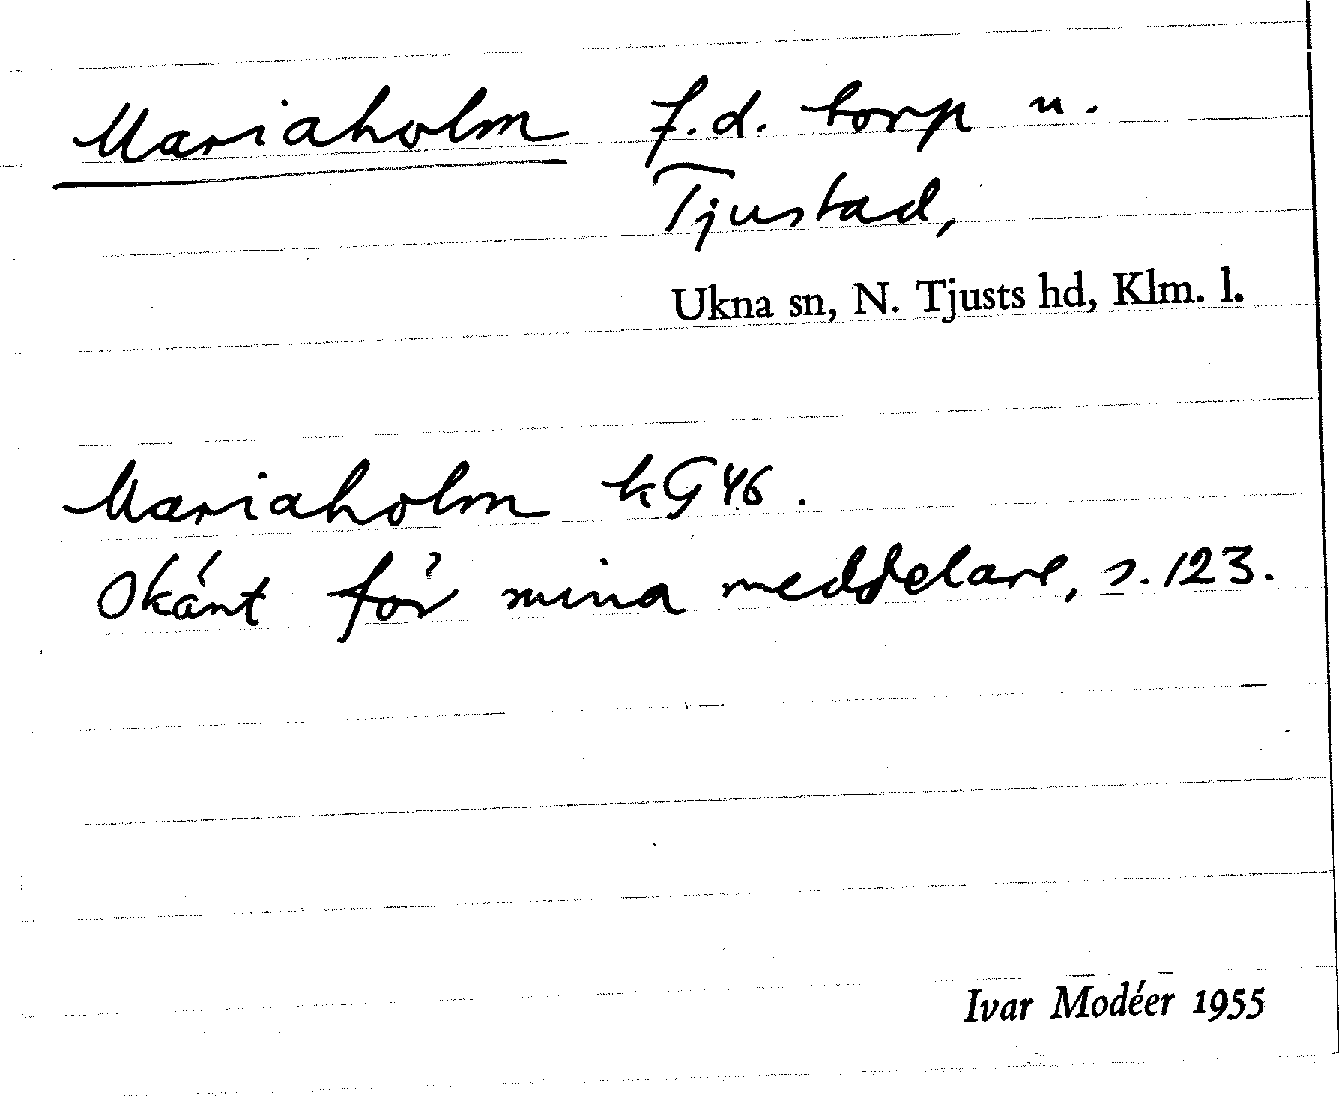 Mariaholm f.d. torp u.
Tjustad,
Ukna sn, N. Tjusts hd, Klm. l.
Mariaholm kG46.
Okänt för mina meddelare, s. 123.
Ivar Modéer 1955